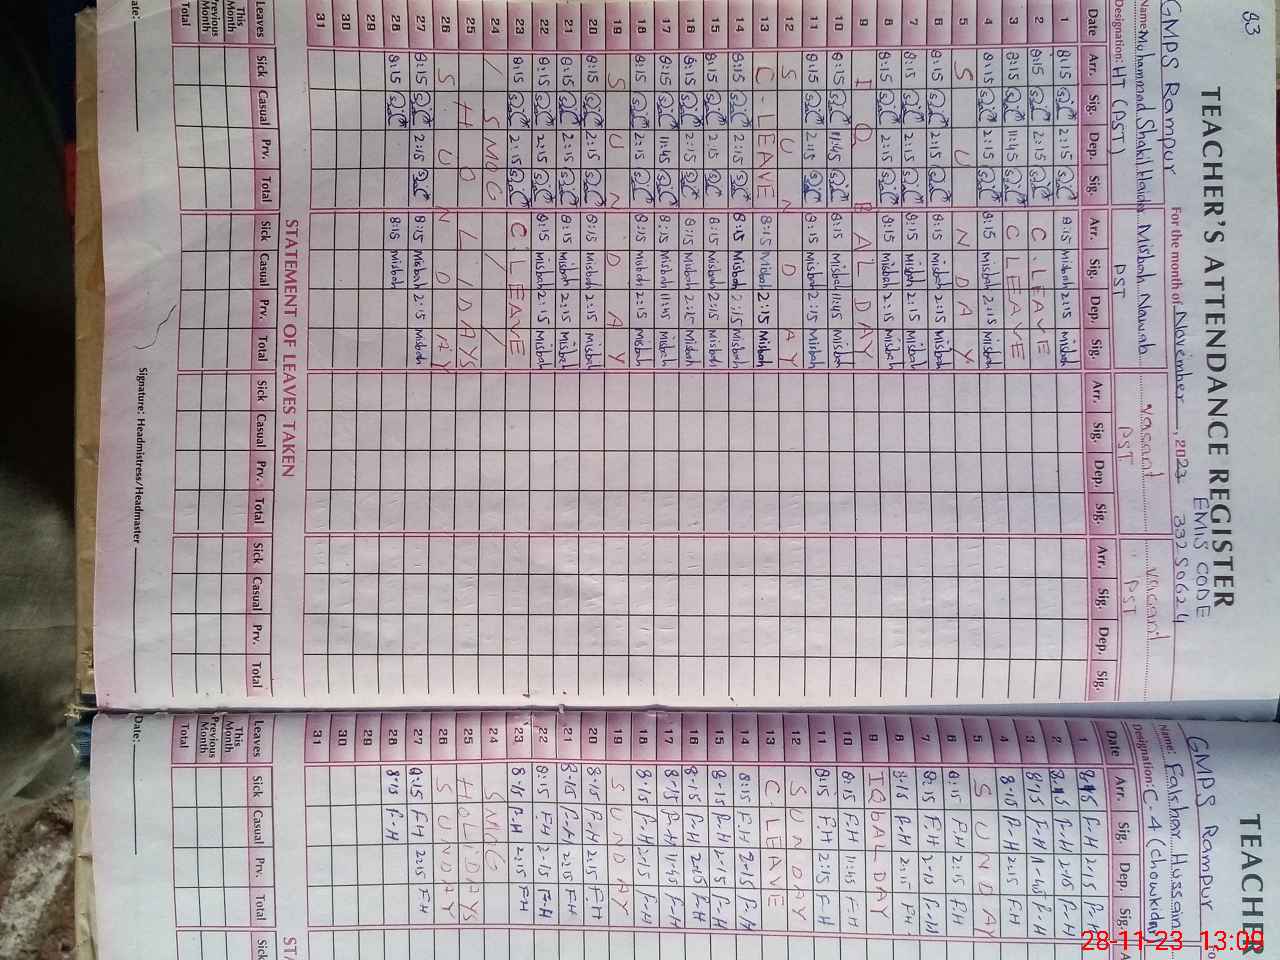 83
TEACHER'S ATTENDANCE REGISTER
EMIS CODE
33250624
GMPS Rampur For the month of November, 2023
Name: Muhammad Shakil Haider Misbah Nawab Vacant Vacant
Designation: HT (PST) PST PST PST
Date Arr. Sig. Dep. Sig. Arr. Sig. Dep. Sig. Arr. Sig. Dep. Sig. Arr. Sig. Dep. Sig.
1 8:15 2:15 8:15 Misbah 2:15 Misbah
2 8:15 2:15 C. LEAVE
3 8:15 11:45 C LEAVE
4 8:15 2:15 8:15 Misbah 2:15 Misbah
5 S U N D A Y
6 8:15 2:15 8:15 Misbah 2:15 Misbah
7 8:15 2:15 8:15 Misbah 2:15 Misbah
8 8:15 2:15 8:15 Misbah 2:15 Misbah
9 I Q B A L D A Y
10 8:15 11:45 8:15 Misbah 11:45 Misbah
11 8:15 2:15 8:15 Misbah 2:15 Misbah
12 S U N D A Y
13 C. LEAVE 8:15 Misbah 2:15 Misbah
14 8:15 2:15 8:15 Misbah 2:15 Misbah
15 8:15 2:15 8:15 Misbah 2:15 Misbah
16 8:15 2:15 8:15 Misbah 2:15 Misbah
17 8:15 11:45 8:15 Misbah 11:45 Misbah
18 8:15 2:15 8:15 Misbah 2:15 Misbah
19 S U N D A Y
20 8:15 2:15 8:15 Misbah 2:15 Misbah
21 8:15 2:15 8:15 Misbah 2:15 Misbah
22 8:15 2:15 8:15 Misbah 2:15 Misbah
23 8:15 2:15 C. LEAVE
24 / SMOG / /
25 H O L I D A Y S
26 S U N D A Y
27 8:15 2:15 8:15 Misbah 2:15 Misbah
28 8:15 8:15 Misbah
29
30
31
STATEMENT OF LEAVES TAKEN
Leaves Sick Casual Prv. Total Sick Casual Prv. Total Sick Casual Prv. Total Sick Casual Prv. Total
This Month
Previous Month
Total
Date: Signature: Headmistress/Headmaster
TEACHER
GMPS Rampur Fo
Name: Hussain
Designation: C-4 (chowkidar)
Date Arr. Sig. Dep. Sig. A
1 8:15 F-H 2:15 F-H
2 8:15 F-H 2-15 F-H
3 8-15 F-H 11-45 F-H
4 8-15 F-H 2:15 F.H
5 S U N D A Y
6 8:15 F.H 2:15 F.H
7 8:15 F.H 2-15 F-H
8 8-15 F-H 2:15 F.H
9 IQBAL DAY
10 8:15 F.H 11:45 F.H
11 8:15 F.H 2:15 F.H
12 SUNDAY
13 C. LEAVE
14 8:15 F.H 2-15 F-H
15 8-15 F-H 2-15 F-H
16 8-15 F-H 2-15 F-H
17 8-15 F-H 11-45 F-H
18 8-15 F-H 2-15 F-H
19 S U N D A Y
20 8-15 F-H 2:15 F.H
21 8-15 F-H 2:15 F.H
22 8:15 F.H 2-15 F-H
23 8-15 F-H 2:15 F.H
24 SMOG
25 HOLIDAYS
26 SUNDAY
27 8:15 F.H 2:15 F.H
28 8-15 F-H
29
30
31
STA
Leaves Sick Casual Prv. Total Sick
This Month
Previous Month
Total
Date:
28-11-23 13:09